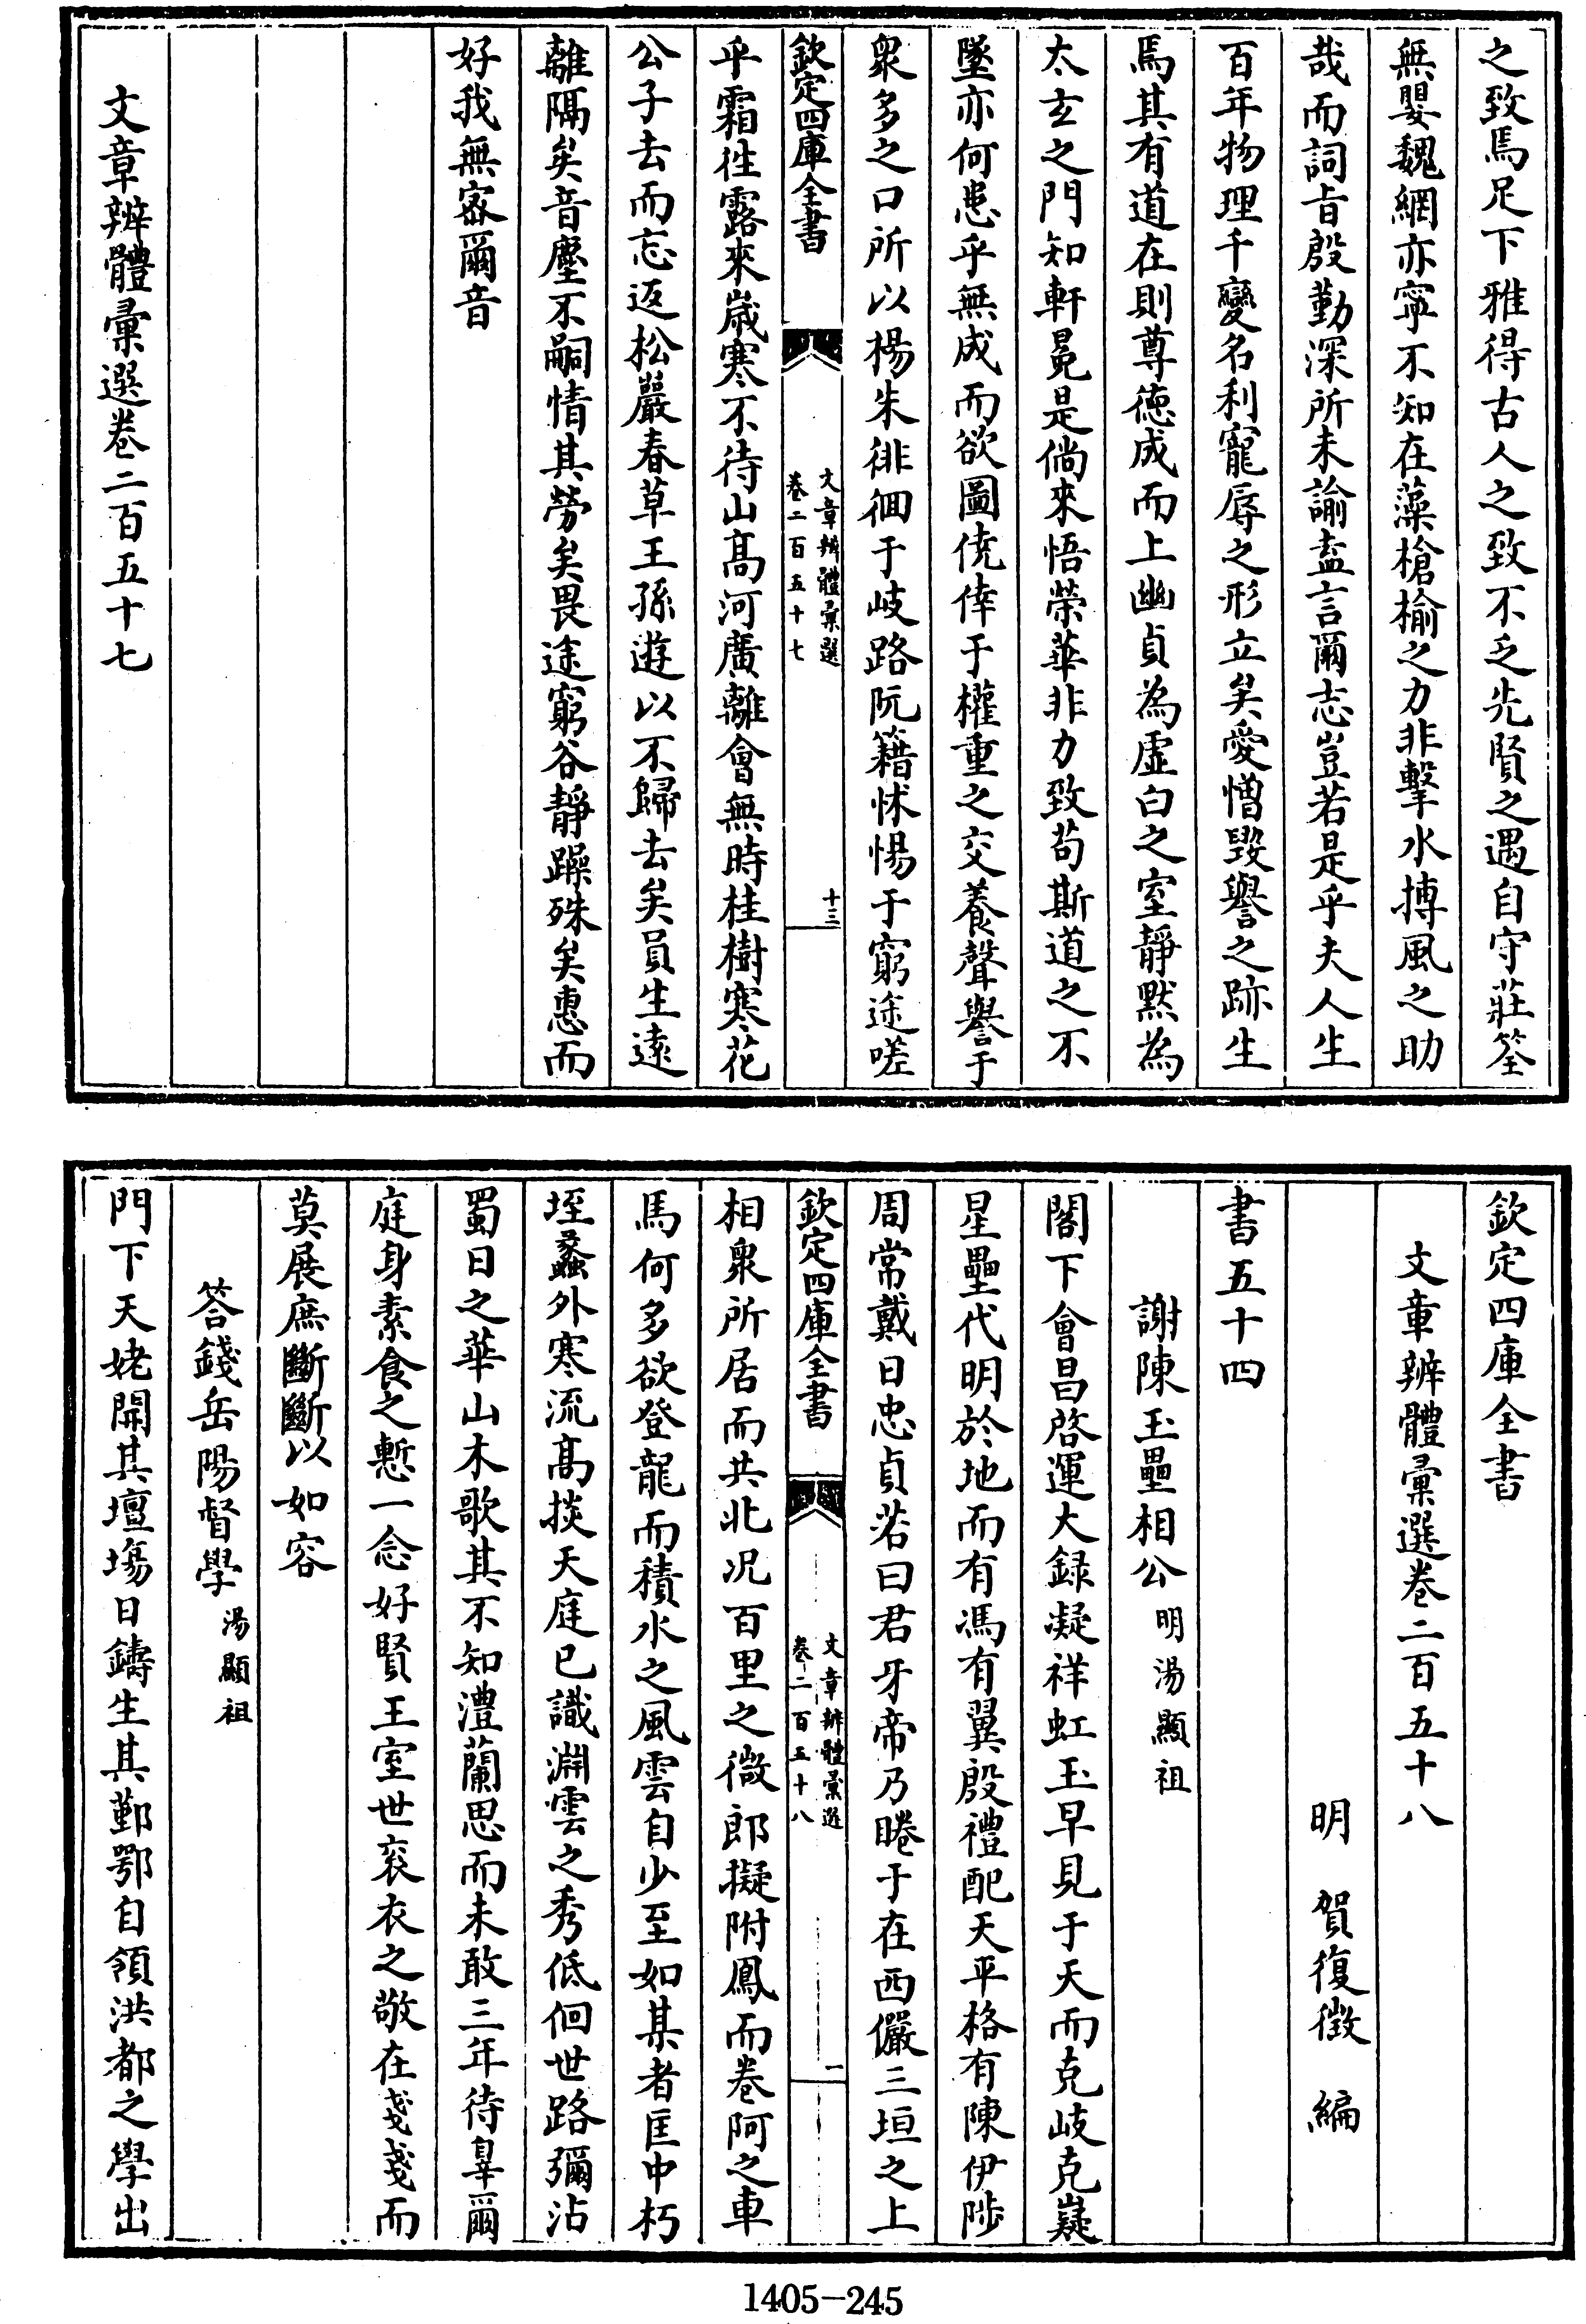 之致馬足下雅得古人之致不乏先賢之遇自守莊筌
無嬰魏網亦寧不知在藻槍榆之力非擊水摶風之助
哉而詞旨殷勤深所未諭盍言爾志豈若是乎夫人生
百年物理千變名利寵辱之形立矣愛憎毀譽之跡生
馬其有道在則尊德成而上幽貞為虛白之室靜默為
太玄之門知軒冕是倘來悟榮華非力致苟斯道之不
墜亦何患乎無成而欲圖僥倖于權重之交養聲譽于
衆多之口所以楊朱徘徊于岐路阮籍怵惕于窮途嗟
欽定四庫全書
文章辨體彙選
卷二百五十七
十三
乎霜徃露來歲寒不待山高河廣離會無時桂樹寒花
公子去而忘返松巖春草王孫遊以不歸去矣員生遠
離隔矣音塵不嗣情其勞矣畏途窮谷靜躁殊矣惠而
好我無宻爾音
文章辨體彙選卷二百五十七
欽定四庫全書
文章辨體彙選卷二百五十八
明 賀復徵 編
書五十四
謝陳玉壘相公 明湯顯祖
閣下會昌啓運大録凝祥虹玉早見于天而克岐克嶷
星壘代明於地而有馮有翼殷禮配天平格有陳伊陟
周常戴日忠貞若曰君牙帝乃睠于在西儼三垣之上
欽定四庫全書
文章辨體彙選
卷二百五十八
一
相衆所居而共北况百里之微郎擬附鳳而卷阿之車
馬何多欲登龍而積水之風雲自少至如某者匡中朽
垤蠡外寒流髙掞天庭已識淵雲之秀低徊世路彌沾
蜀日之華山木歌其不知澧蘭思而未敢三年待辠爾
庭身素食之慙一念好賢王室世衮衣之敬在戔戔而
莫展庶斷斷以如容
答錢岳陽督學 湯顯祖
門下天姥開其壇塲日鑄生其鄞鄂自領洪都之學出
1405-245